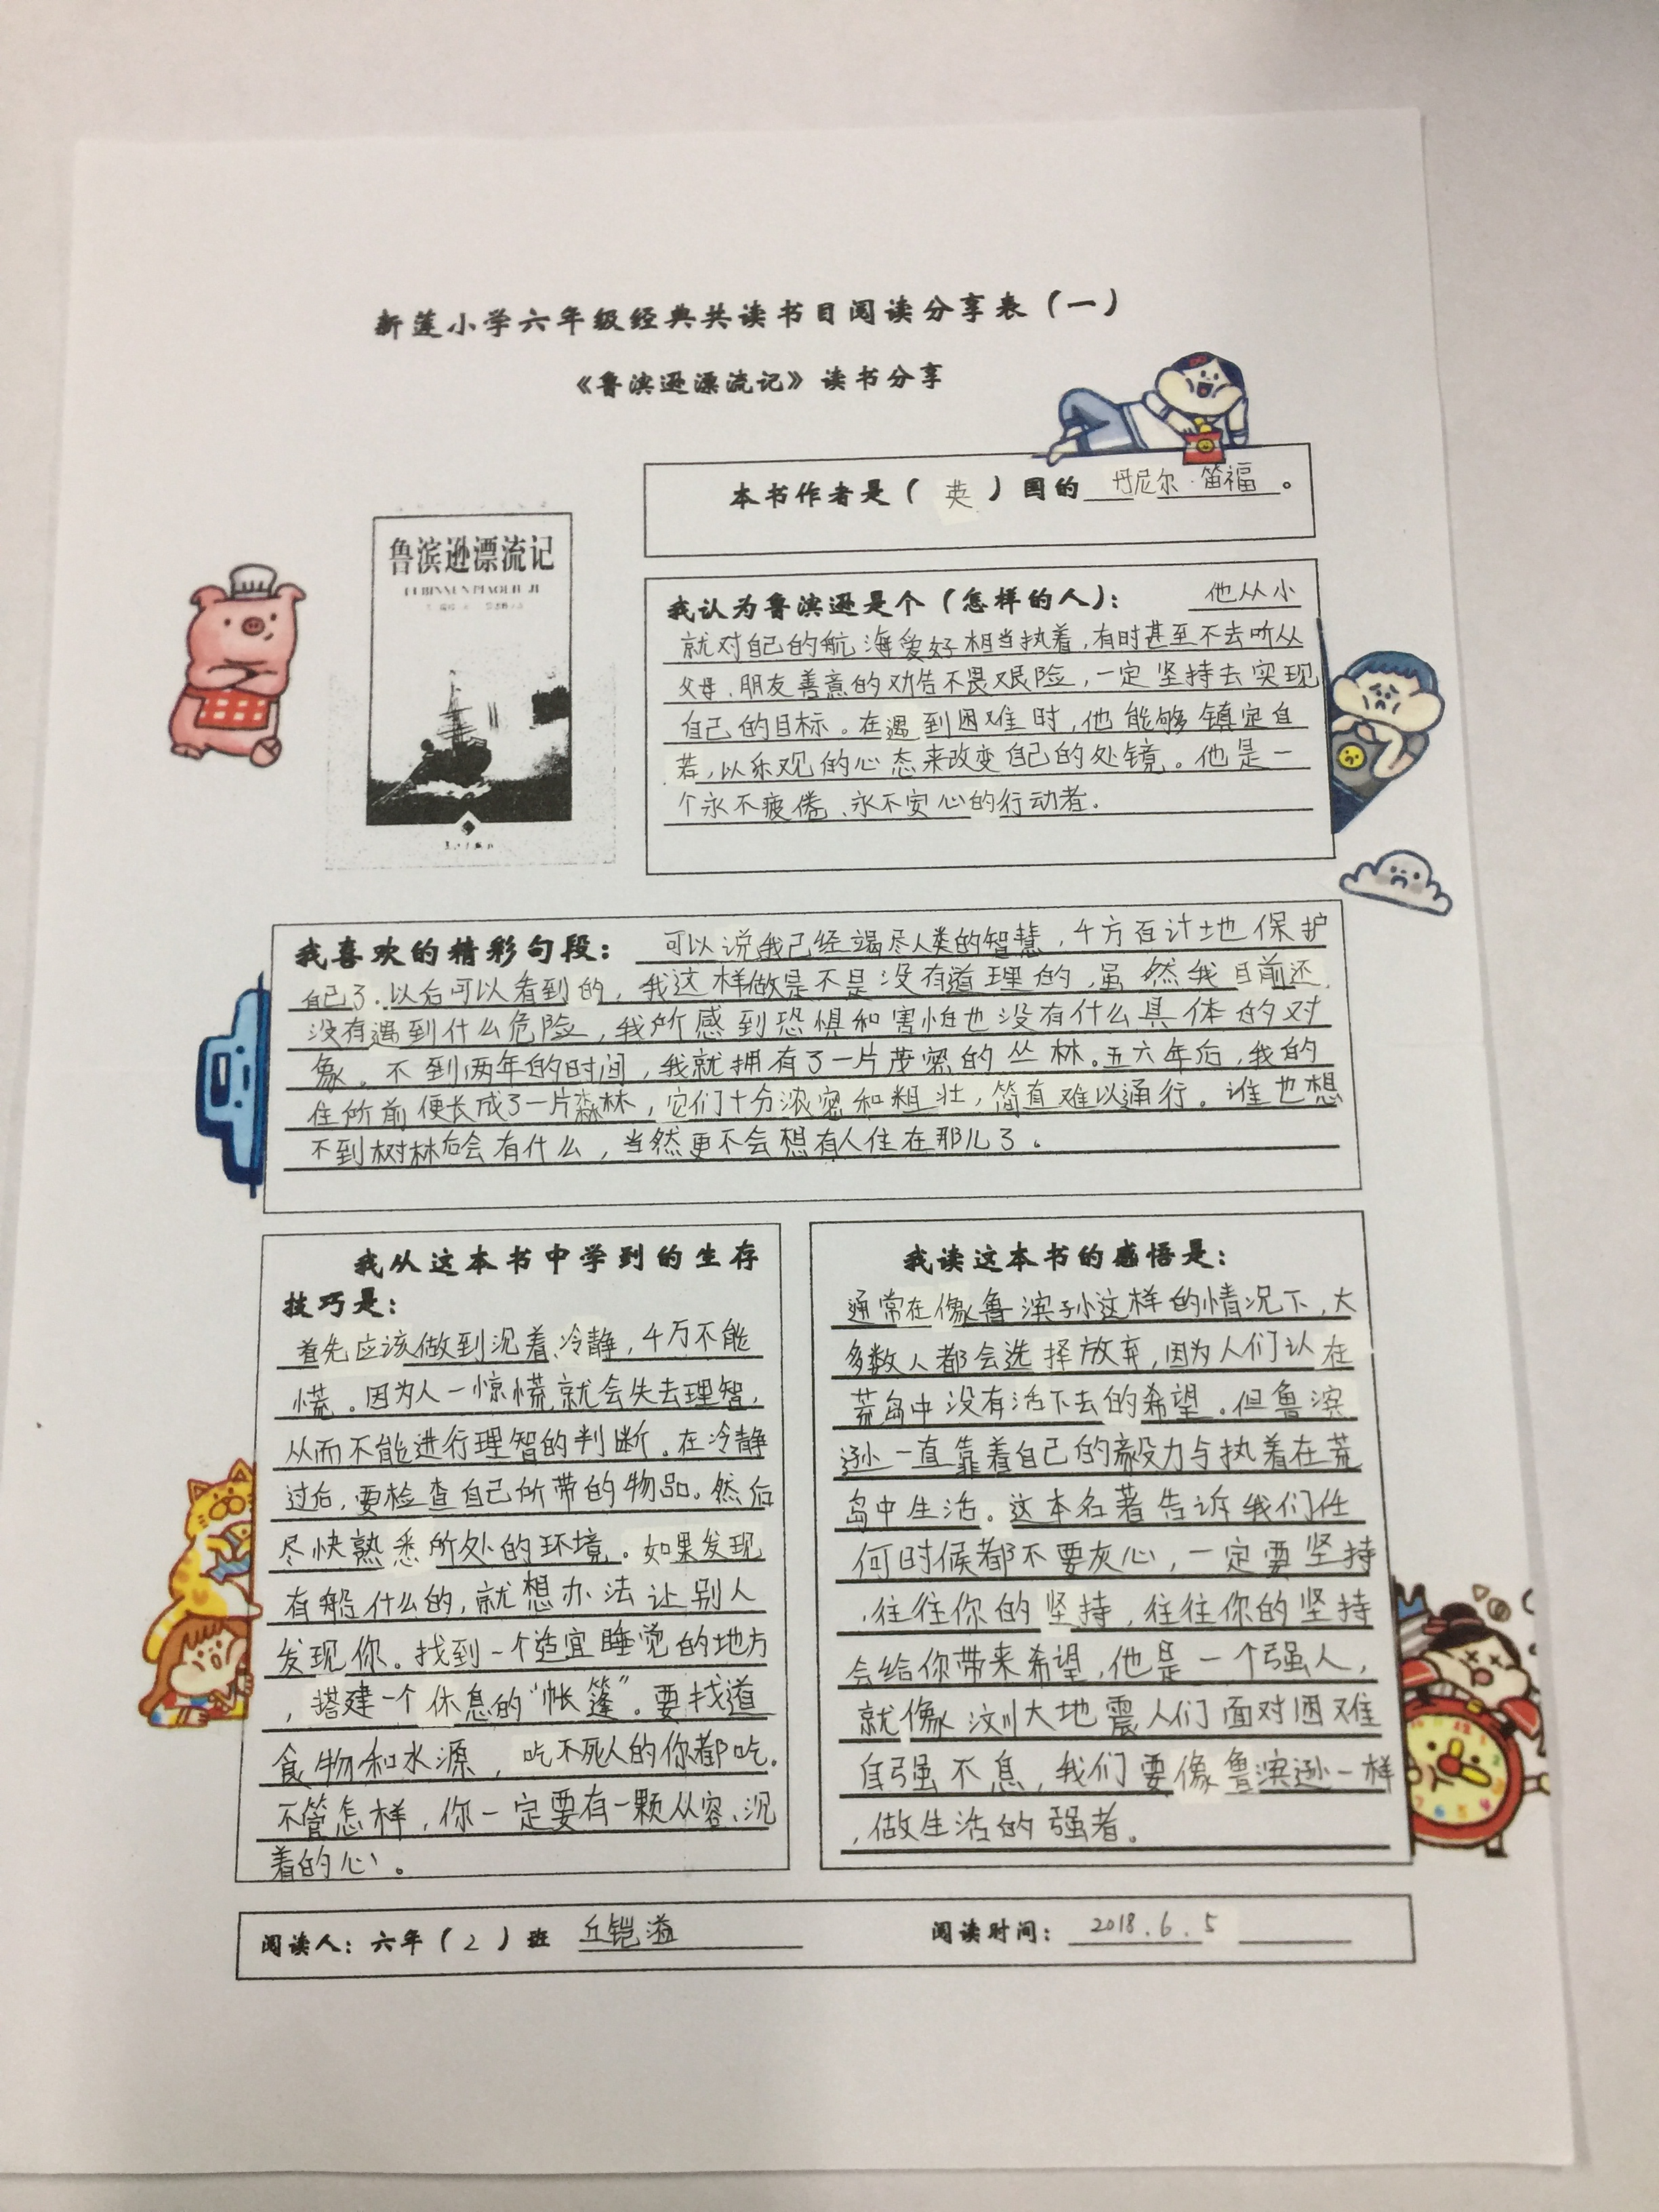 新莲小学六年级经典共读书目阅读分享表（一）
《鲁滨逊漂流记》读书分享
本书作者是（英）国的 丹尼尔·笛福。
鲁滨逊漂流记
我认为鲁滨逊是个（怎样的人）： 他从小
就对自己的航海爱好相当执着，有时甚至不去听从
父母、朋友善意的劝告不畏艰险，一定坚持去实现
自己的目标。在遇到困难时，他能够镇定自
若，以乐观的心态来改变自己的处镜。他是一
个永不疲倦、永不安心的行动者。
我喜欢的精彩句段： 可以说我已经竭尽人类的智慧，千方百计地保护
自己了。以后可以看到的，我这样做是不是没有道理的，虽然我目前还
没有遇到什么危险，我所感到恐惧和害怕也没有什么具体的对
象。不到两年的时间，我就拥有了一片茂密的丛林。五六年后，我的
住所前便长成了一片森林，它们十分浓密和粗壮，简直难以通行。谁也想
不到树林后会有什么，当然更不会想有人住在那儿了。
我从这本书中学到的生存
技巧是：
首先应该做到沉着、冷静，千万不能
慌。因为人一惊慌就会失去理智，
从而不能进行理智的判断。在冷静
过后，要检查自己所带的物品。然后
尽快熟悉所处的环境。如果发现
有船什么的，就想办法让别人
发现你。找到一个适宜睡觉的地方
，搭建一个休息的“帐篷”。要找道
食物和水源，吃不死人的你都吃。
不管怎样，你一定要有一颗从容、沉
着的心。
我读这本书的感悟是：
通常在像鲁滨孙这样的情况下，大
多数人都会选择放弃，因为人们认在
荒岛中没有活下去的希望。但鲁滨
逊一直靠着自己的毅力与执着在荒
岛中生活。这本名著告诉我们任
何时候都不要灰心，一定要坚持
，往往你的坚持，往往你的坚持
会给你带来希望，他是一个强人，
就像汶川大地震人们面对困难
自强不息，我们要像鲁滨逊一样
，做生活的强者。
阅读人：六年（2）班 丘铠溢 阅读时间：2018.6.5